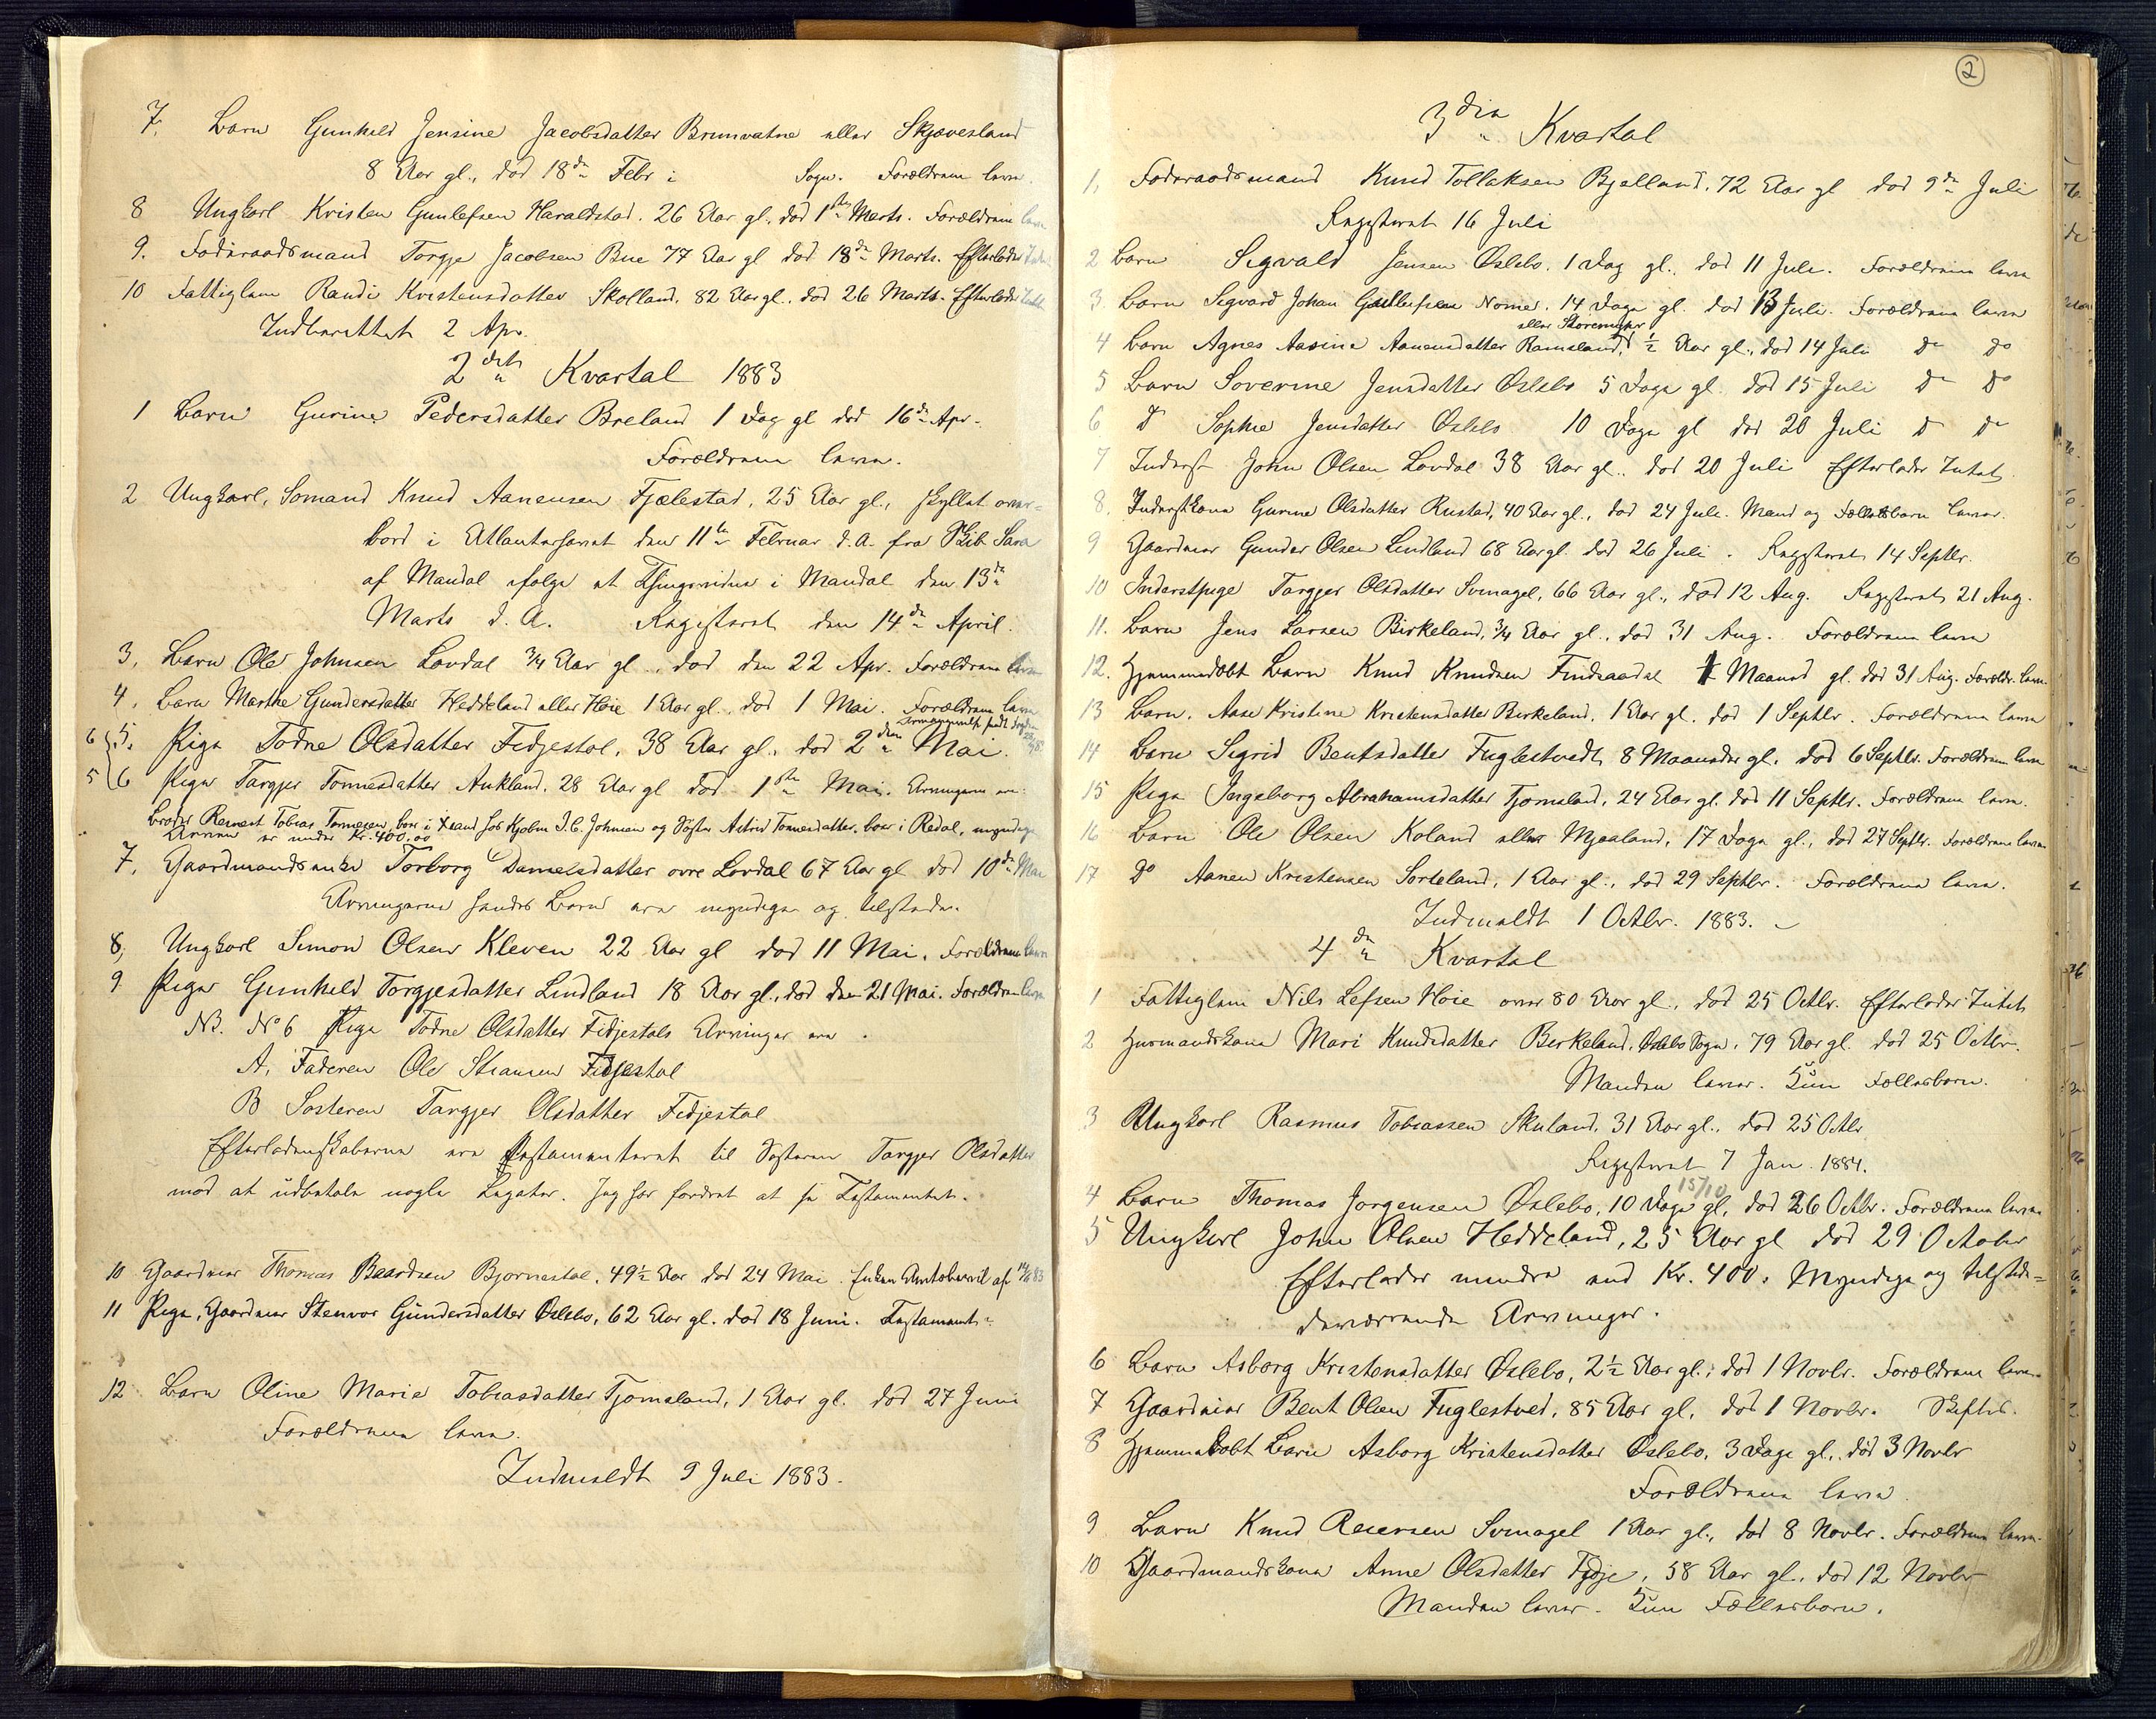 7. Barn Gunhild Jensine Jacobsdatter Brunvatne eller Skjævesland
8 Aar gl., død 18de Febr i Sogn. Forældrene leve.
8 Ungkarl Kristen Gunlefsen Haraldstad. 26 Aar gl. død 1ste Marts. Forældrene leve
9. Føderaadsmand Torgje Jacobsen Bue 77 Aar gl død 18de Marts. Efterlader Intet
10 Fattiglem Randi Kristensdatter Skofland, 82 Aar gl. død 26 Marts. Efterlader Intet
Indberettet 2 Apr.
2det Kvartal 1883
1 Barn Gurine Pedersdatter Breland 1 Dag gl død 16de Apr.
Forældrene leve.
2 Ungkarl, Sømand Knud Aanensen Fjælestad, 25 Aar gl., skyllet over-
bord i Atlanterhavet den 11te Februar d.A. fra Skib Sara
af Mandal ifølge et Thingsvidne i Mandal den 13de
Marts d. A. Registeret den 14de April.
3. Barn Ole Johnsen Løvdal 3/4 Aar gl., død den 22 Apr. Forældrene leve
4. Barn Marthe Gundersdatter Heddeland eller Høie 1 Aar gl. død 1 Mai. Forældrene leve
6 5. Pige Todne Olsdatter Fidjestøl, 38 Aar gl., død 2den Mai.
5 6 Pige Targjer Tønnesdatter Aukland, 28 Aar gl død 1ste Mai. Arvingerne ere:
Broder Reinert Tobias Tønnesen, bor i Xsand hos Kjøbm J.C. Johnsen og Søster Astrid Tønnesdatter, bor i Redal, myndige
Arven er under Kr. 400,00
7. Gaardmandsenke Torborg Danielsdatter øvre Løvdal 67 Aar gl død 10de Mai
Arvingerne hendes Børn ere myndige og tilstede.
8, Ungkarl Simon Olsen Kleven 22 Aar gl død 11 Mai. Forældrene leve
9 Pige Gunhild Torgjesdatter Lindland 18 Aar gl., død den 21 Mai. Forældrene leve
NB. No 6 Pige Todne Olsdatter Fidjestøls Arvinger ere.
A. Faderen Ole Fidjestøl
B Søsteren Targjer Olsdatter Fidjestøl
Efterladenskaberne ere testamenteret til Søsteren Targjer Olsdatter
mod at udbetale nogle Legater. Jeg har fordret at se Testamentet.
10 Gaardmand Thomas Baardsen Bjørnestøl, 49½ Aar død 24 Mai. Enken af
11 Pige, Gaardeier Stenvor Gundersdatter Øslebø, 62 Aar gl. død 18 Juni. Testament.
12 Barn Oline Marie Tobiasdatter Tjomsland, 1 Aar gl. død 27 Juni
Forældrene leve.
Indmeldt 9 Juli 1883.
2
3die Kvartal
1, Føderaadsmand Knud Tollaksen Bjelland, 72 Aar gl død 9de Juli
Registeret 16 Juli
2 Barn Sigvald Jensen Øslebø. 1 Dag gl. død 11 Juli. Forældrene leve
3 Barn Sigvard Johan Nome. 14 Dage gl. død 13 Juli. Forældrene leve
eller Storemyhr
4 Barn Agnes Aasine Aanensdatter Ramsland, ½ Aar gl., død 14 Juli do do
5 Barn Soverine Jensdatter Øslebø 5 Dage gl. død 15 Juli do do
6 do Sophie Jensdatter Øslebø 10 Dage gl død 20 Juli do do
7 Inderst John Olsen Løvdal 38 Aar gl. død 20 Juli Efterlader Intet.
8. Inderstkone Gurine Olsdatter Rustad, 40 Aar gl., død 24 Juli. Mand og Fællesbarn lever.
9 Gaardeier Gunder Olsen Lindland 68 Aar gl. død 26 Juli. Registeret 14 Septbr.
10 Inderstpige Targjer Olsdatter Svinagel, 66 Aar gl., død 12 Aug. Registeret 21 Aug.
11. Barn Jens Larsen Birkeland, 3/4 Aar gl., død 31 Aug. Forældrene leve
12. Hjemmedøbt Barn Knud Knudsen Finsaadal 1 Maaned gl. død 31 Aug. Forældr. leve.
13 Barn. Aase Kristine Kristensdatter Birkeland, 1 Aar gl. død 1 Septbr. Forældrene leve
14 Barn Sigrid Bentsdatter Fuglestvedt, 8 Maaneder gl. død 6 Septbr. Forældrene leve
15 Pige Ingeborg Abrahamsdatter Tjomsland, 24 Aar gl. død 11 Septbr. Forældrene leve.
16 Barn Ole Olsen Røland eller Mjaaland, 17 Dage gl., død 27 Septbr. Forældrene leve
17 do Aanen Kristensen Sorteland, 1 Aar gl., død 29 Septbr. Forældrene leve.
Indmeldt 1 Octbr. 1883.
4de Kvartal
1 Fattiglem Nils Lefsen Høie over 80 Aar gl. død 25 Octbr. Efterlader Intet
2 Husmandskone Mari Knudsdatter Birkeland, Øslebø Sogn, 79 Aar gl. død 25 Octbr.
Manden lever. Kun Fællesbørn.
3 Ungkarl Rasmus Tobiassen Skuland, 31 Aar gl., død 25 Octbr
Registeret 7 Jan. 1884.
15/10
4 Barn Thomas Jørgensen Øslebø, 10 Dage gl. død 26 Octbr. Forældrene leve
5 Ungkarl John Olsen Heddeland, 25 Aar gl død 29 October
Efterlader mindre end Kr. 400. Myndige og tilstede-
deværende Arvinger.
6 Barn Asborg Kristensdatter Øslebø, 2½ Aar gl., død 1 Novbr. Forældrene leve.
7 Gaardeier Bent Olsen Fuglestved, 85 Aar gl. død 1 Novbr. Skiftes.
8 Hjemmedøbt Barn Asborg Kristensdatter Øslebø, 3 Dage gl., død 3 Novbr
Forældrene leve
9 Barn Knud Reiersen Svinagel 1 Aar gl., død 8 Novbr. Forældrene leve.
10 Gaardmandskone Anne Olsdatter Fidje, 58 Aar gl. død 12 Novbr
Manden lever. Kun Fællesbørn.